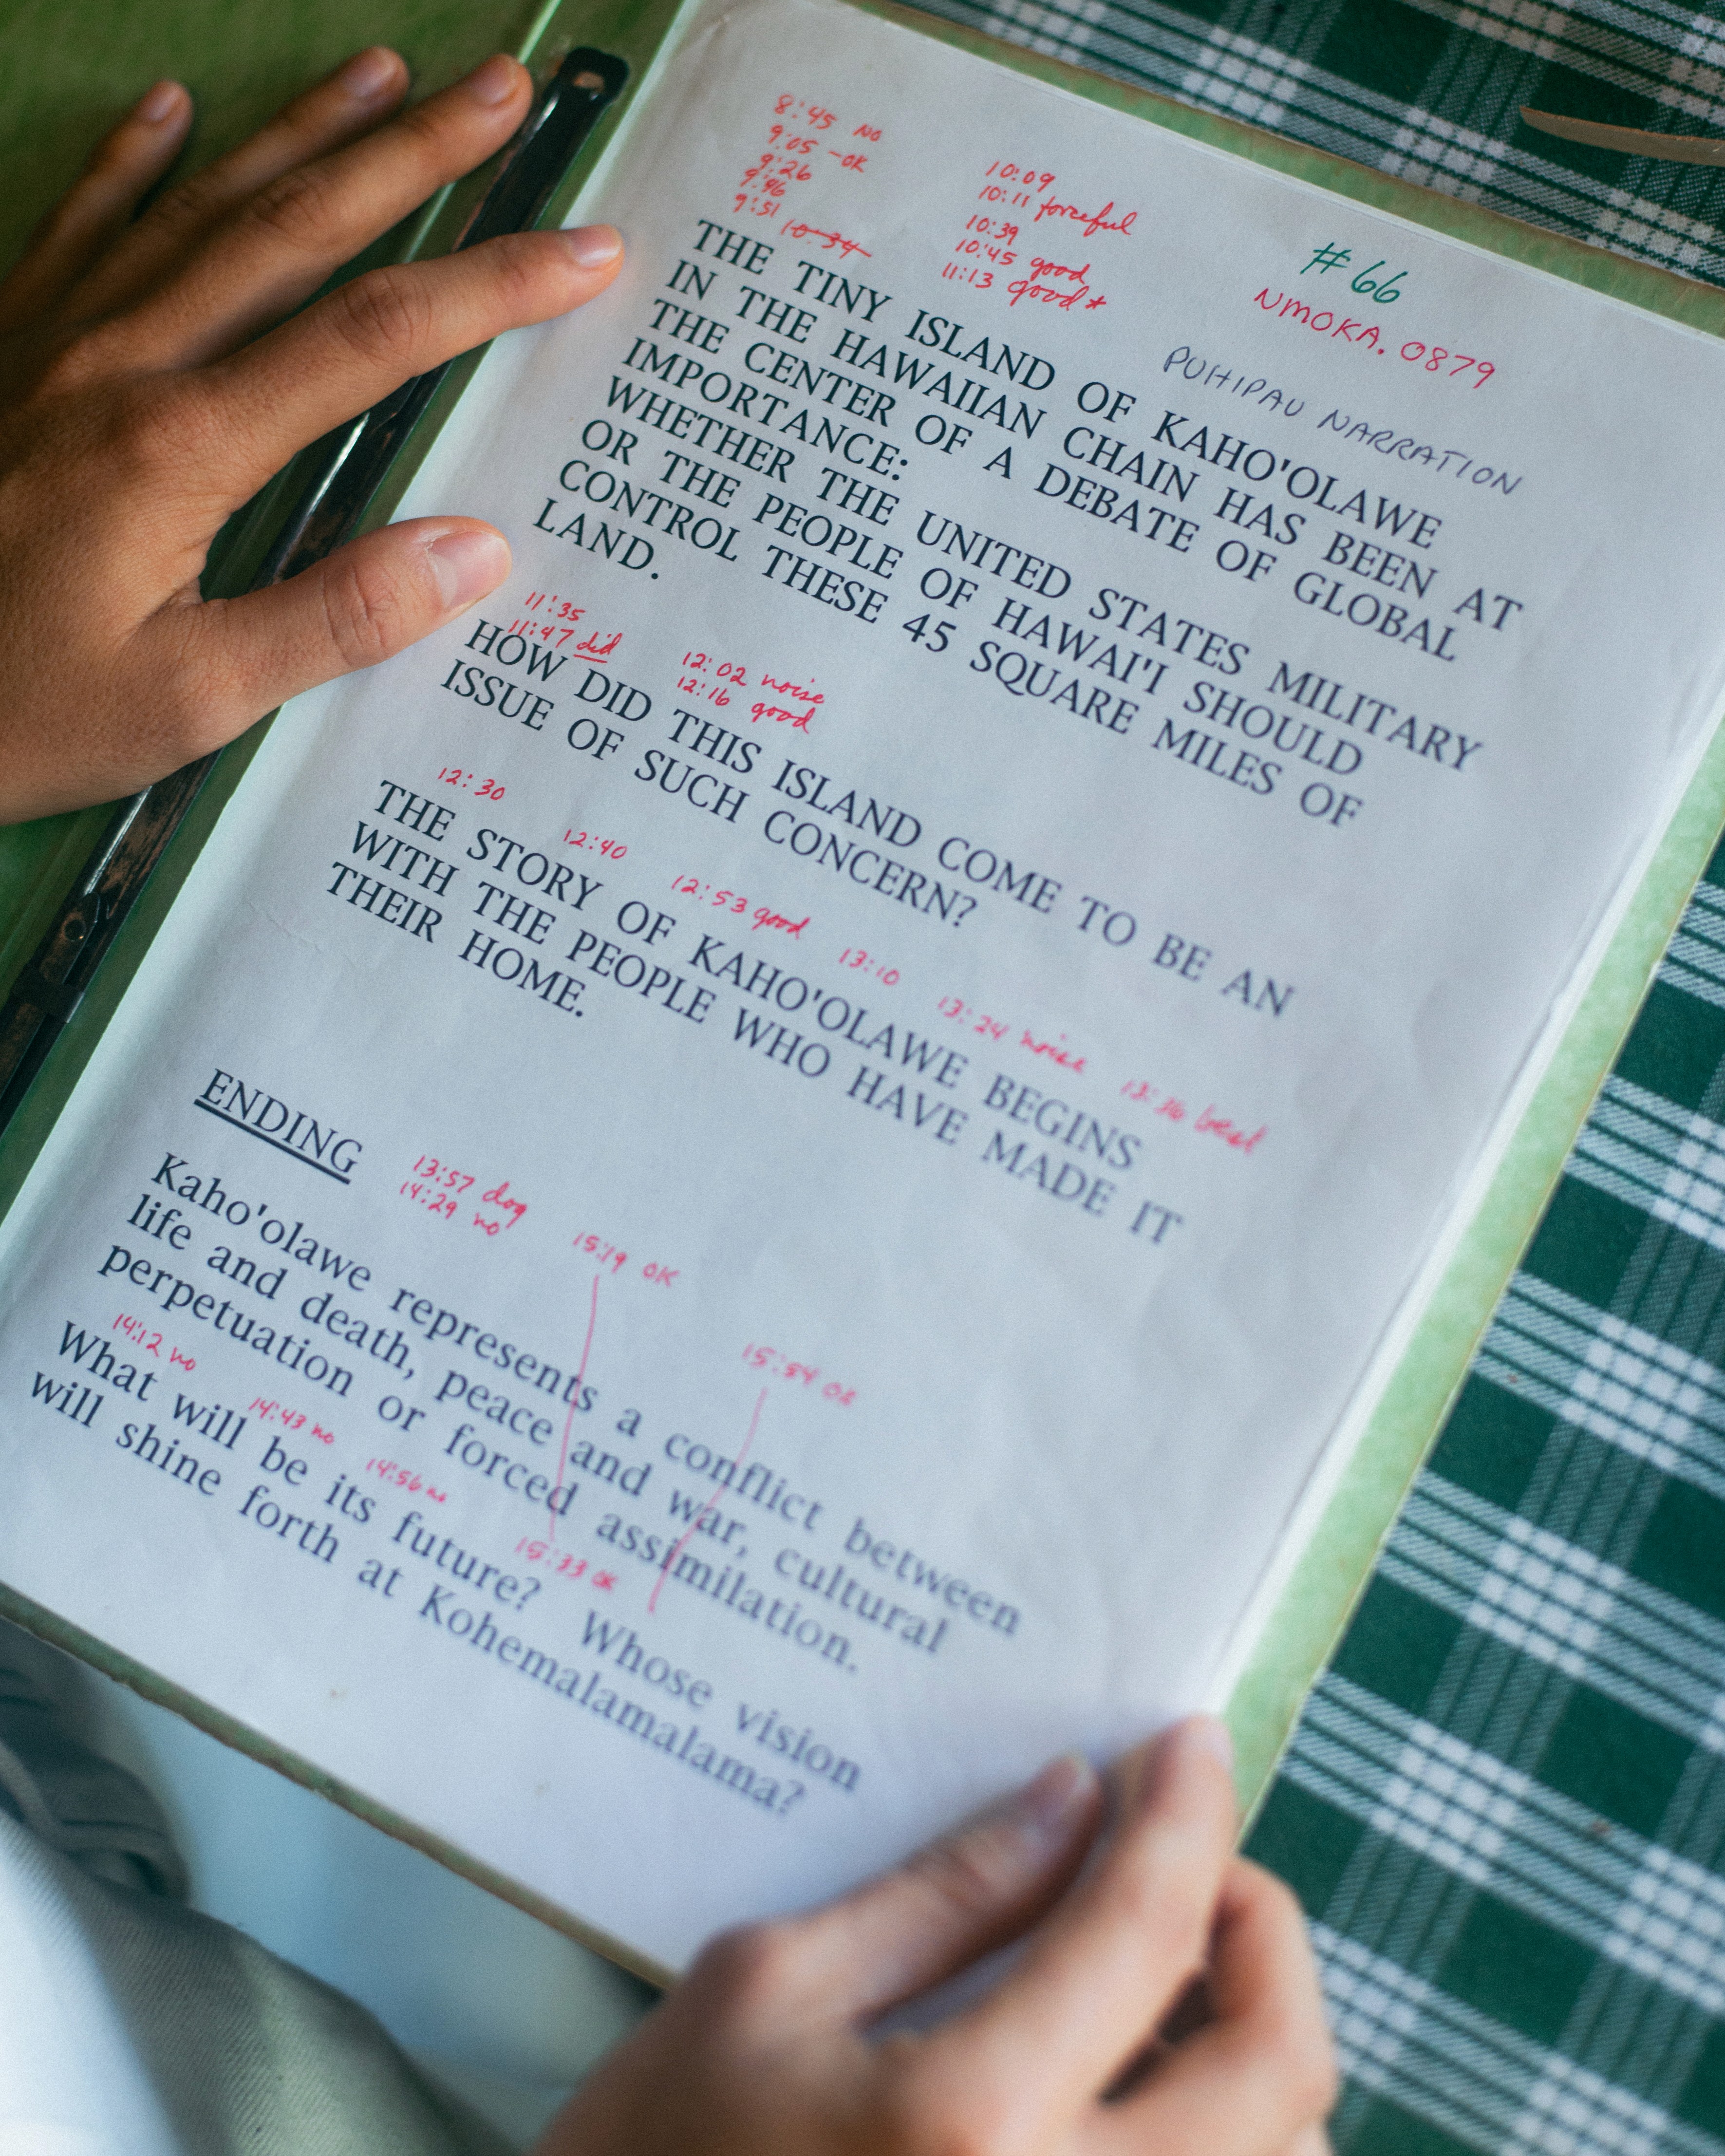 8:45 NO
9:05 -OK
9:26
9:46
9:51
10:34
10:09
10:11 forceful
10:39
10:45 good
11:13 good*
#66
NMOKA. 0879
PUHIPAU NARRATION
THE TINY ISLAND OF KAHO'OLAWE
IN THE HAWAIIAN CHAIN HAS BEEN AT
THE CENTER OF A DEBATE OF GLOBAL
IMPORTANCE:
WHETHER THE UNITED STATES MILITARY
OR THE PEOPLE OF HAWAI'I SHOULD
CONTROL THESE 45 SQUARE MILES OF
LAND.
11:35
11:47 did
12:02 noise
12:16 good
HOW DID THIS ISLAND COME TO BE AN
ISSUE OF SUCH CONCERN?
12:30
12:40
12:53 good
13:10
13:24 noise
13:36 best
THE STORY OF KAHO'OLAWE BEGINS
WITH THE PEOPLE WHO HAVE MADE IT
THEIR HOME.
ENDING
13:57 dog
14:29 no
15:19 OK
15:54 OK
Kaho'olawe represents a conflict between
life and death, peace and war, cultural
perpetuation or forced assimilation.
14:12 no
14:43 no
14:56 no
15:33 OK
What will be its future? Whose vision
will shine forth at Kohemalamalama?